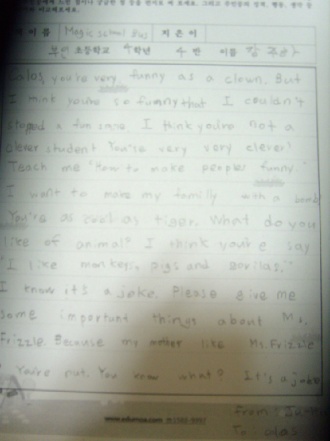 책 이름 Magic School Bus 지은이
부인 초등학교 4학년 4반 이름
you're very funny as a clown. But
I think you're so funny that I couldn't
stoped a fun smile. I think you're not a
clever student You're very very clever!
Teach me "How to make people funny."
I want to make my familly with a bomb
You're as cool as tiger. What do you
like of animal? I think you're say
"I like monkeys, pigs and gorilas,"
I know it's a joke. Please give me
some important things about Ms.
Frizzle. Because my mother like Ms. Frizzle
You're nut. You know what? It's a joke
www.edumoa.com
From:
To.